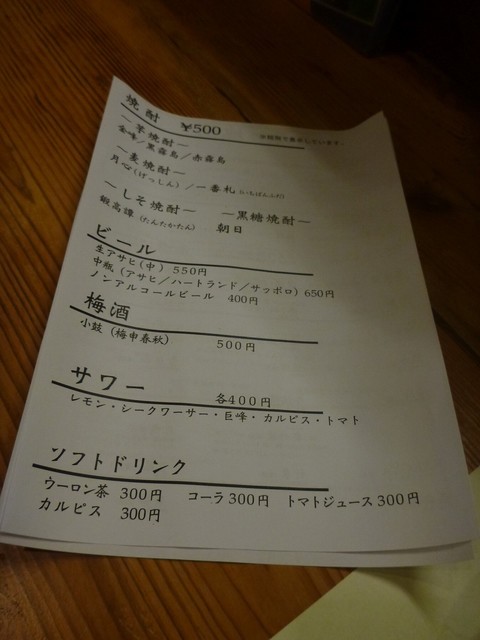 焼酎 ¥500
―芋焼酎―
金峰/黒霧島/赤霧島
―麦焼酎―
月心(げっしん)/一番札(いちばんふだ)
―しそ焼酎― ―黒糖焼酎―
鍛高譚(たんたかたん) 朝日
ビール
生アサヒ(中) 550円
中瓶(アサヒ/ハートランド/サッポロ) 650円
ノンアルコールビール 400円
梅酒
小鼓(梅申春秋) 500円
サワー 各400円
レモン・シークワーサー・巨峰・カルピス・トマト
ソフトドリンク
ウーロン茶 300円 コーラ 300円 トマトジュース 300円
カルピス 300円